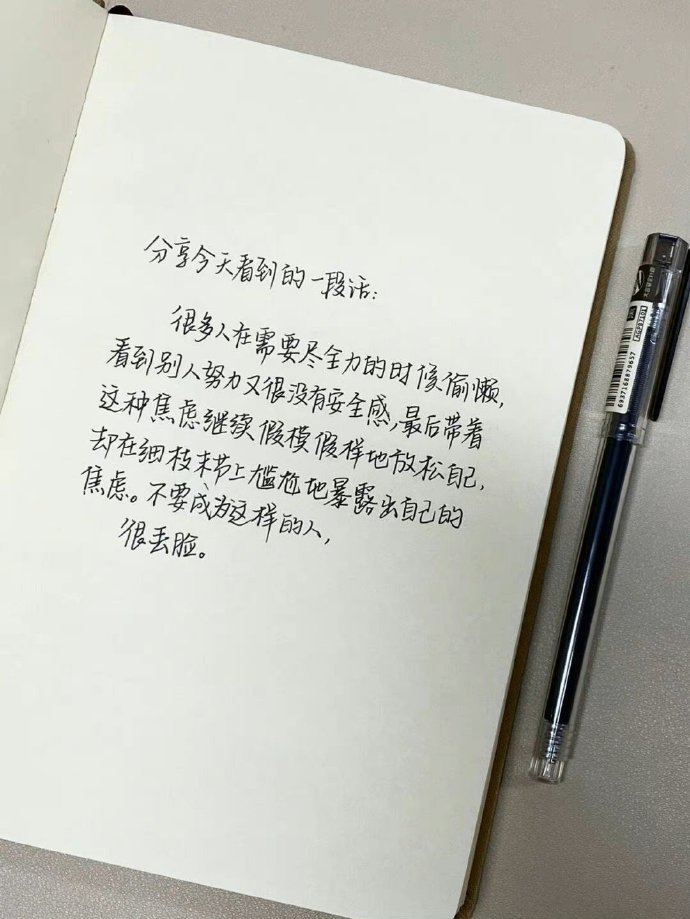 分享今天看到的一段话:
很多人在需要尽全力的时候偷懒,
看到别人努力又很没有安全感,最后带着
这种焦虑继续假模假样地放松自己,
却在细枝末节上尴尬地暴露出自己的
焦虑。不要成为这样的人,
很丢脸。
AGP87101
6937168879657